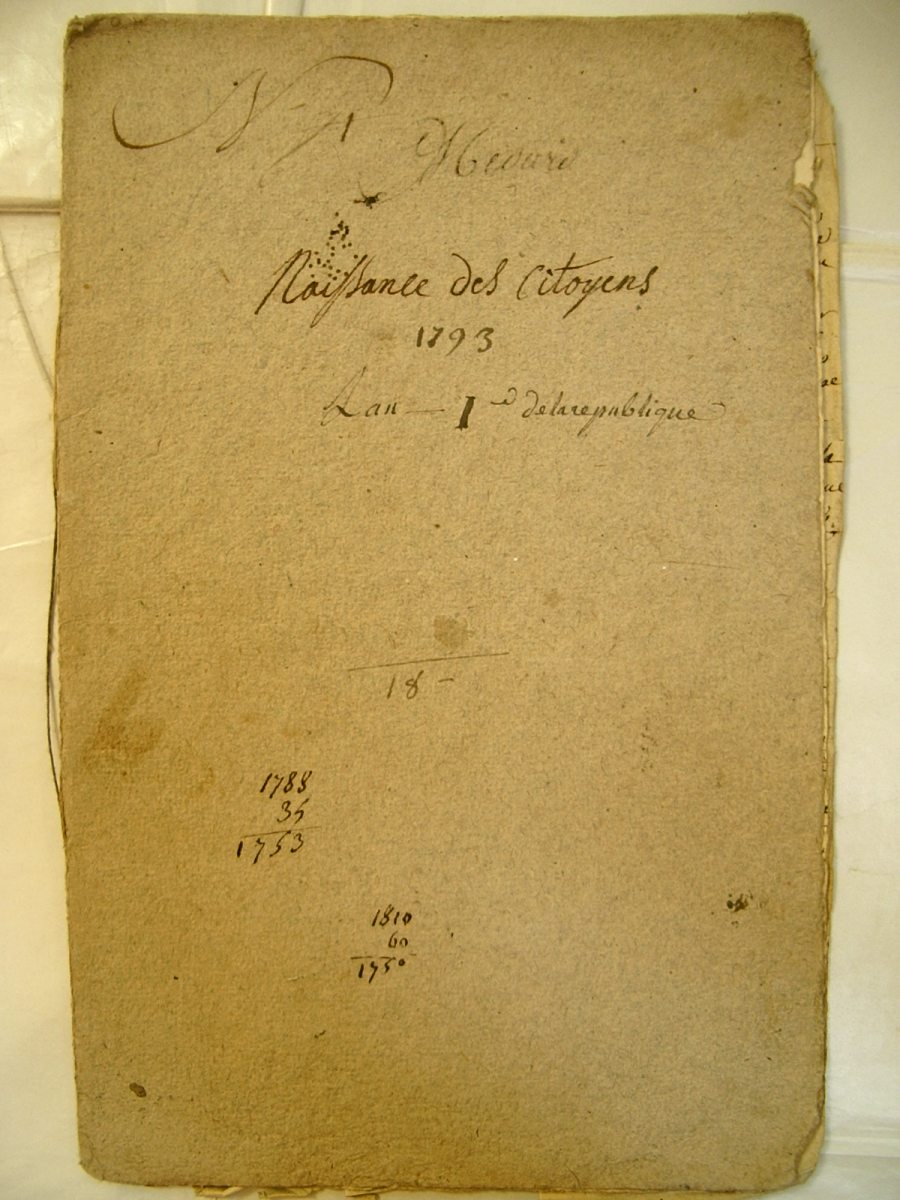 Naissance des Citoyens
1793
L'an — I de la republique
18 -
1788
35
1753
1810
60
1750